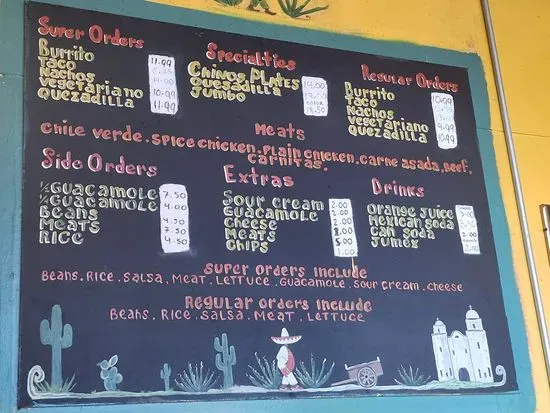 Super Orders
Burrito 11.99
Taco
Nachos
Vegetariano 10.99
Quezadilla 11.99
Specialties
Chinos Plates 14.00
Quesadilla
Jumbo 18.50
Regular Orders
Burrito 10.99
Taco
Nachos
Vegetariano 9.99
Quezadilla 10.99
Meats
Chile verde. Spice chicken. Plain chicken. Carne asada. Beef.
Carnitas.
Side Orders
½ Guacamole 7.50
¼ Guacamole 4.00
Beans 4.50
Meats 7.50
Rice 4.50
Extras
Sour cream 2.00
Guacamole 2.00
Cheese 2.00
Meats
Chips 1.00
Drinks
Orange Juice
Mexican Soda
Can Soda
Jumex
Super orders include
Beans. Rice. Salsa. Meat. Lettuce. Guacamole. Sour cream. Cheese
Regular orders include
Beans. Rice. Salsa. Meat. Lettuce